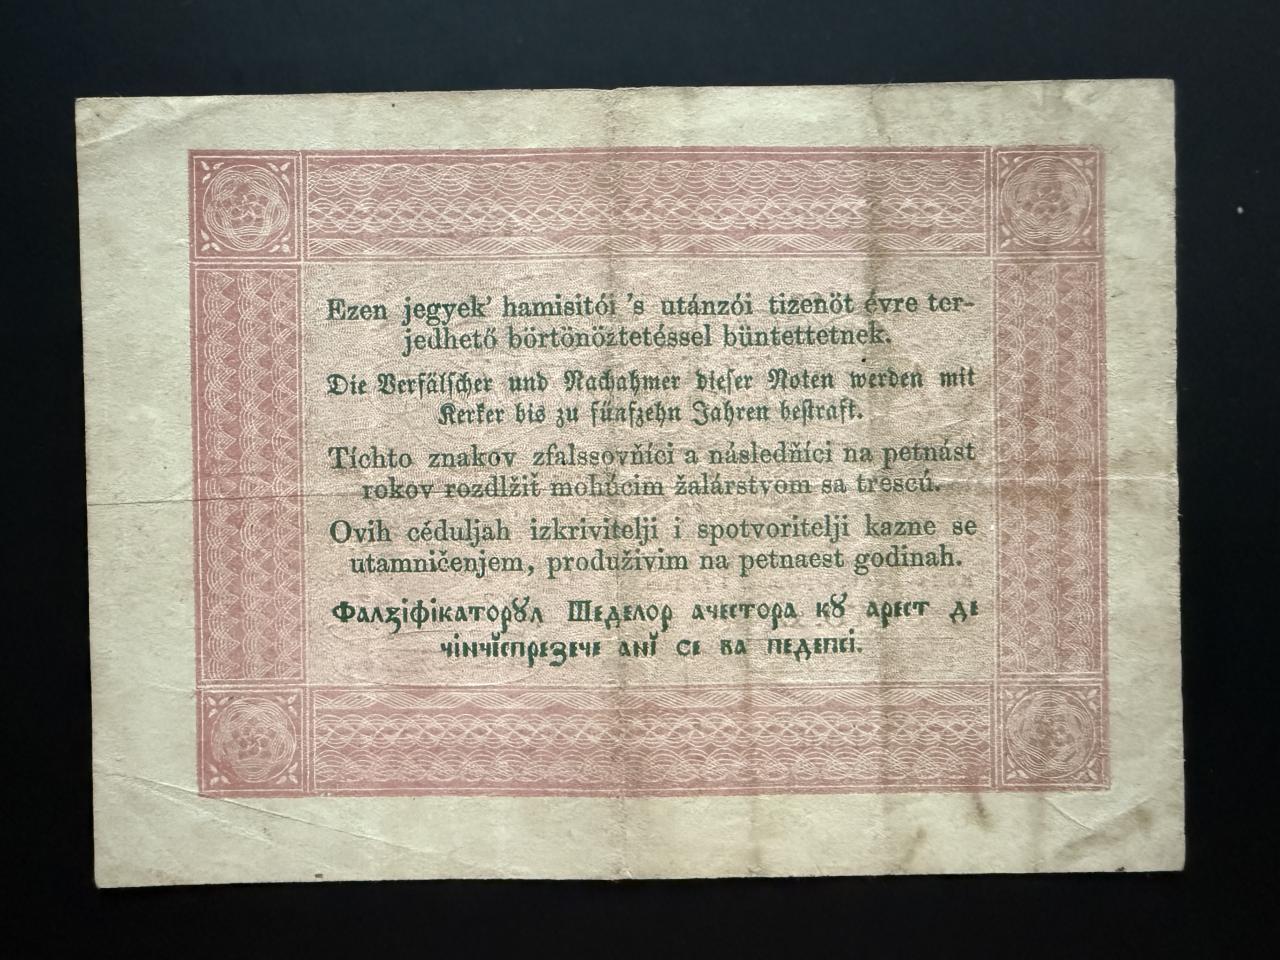 Ezen jegyek’ hamisitói ’s utánzói tizenöt évre ter-
jedhető börtönöztetéssel büntettetnek.
Die Verfälscher und Nachahmer dieser Noten werden mit
Kerker bis zu fünfzehn Jahren bestraft.
Tíchto znakov zfalssovňíci a následňíci na petnást
rokov rozdlžiť mohúcim žalárstvom sa trescú.
Ovih céduljah izkrivitelji i spotvoritelji kazne se
utamničenjem, produživim na petnaest godinah.
Фалꙁіфікаторꙋл Шєдєлор ачєстора кꙋ арєст дє
чінчĭспрєꙁєчє анĭ сє ва пєдєпсі.